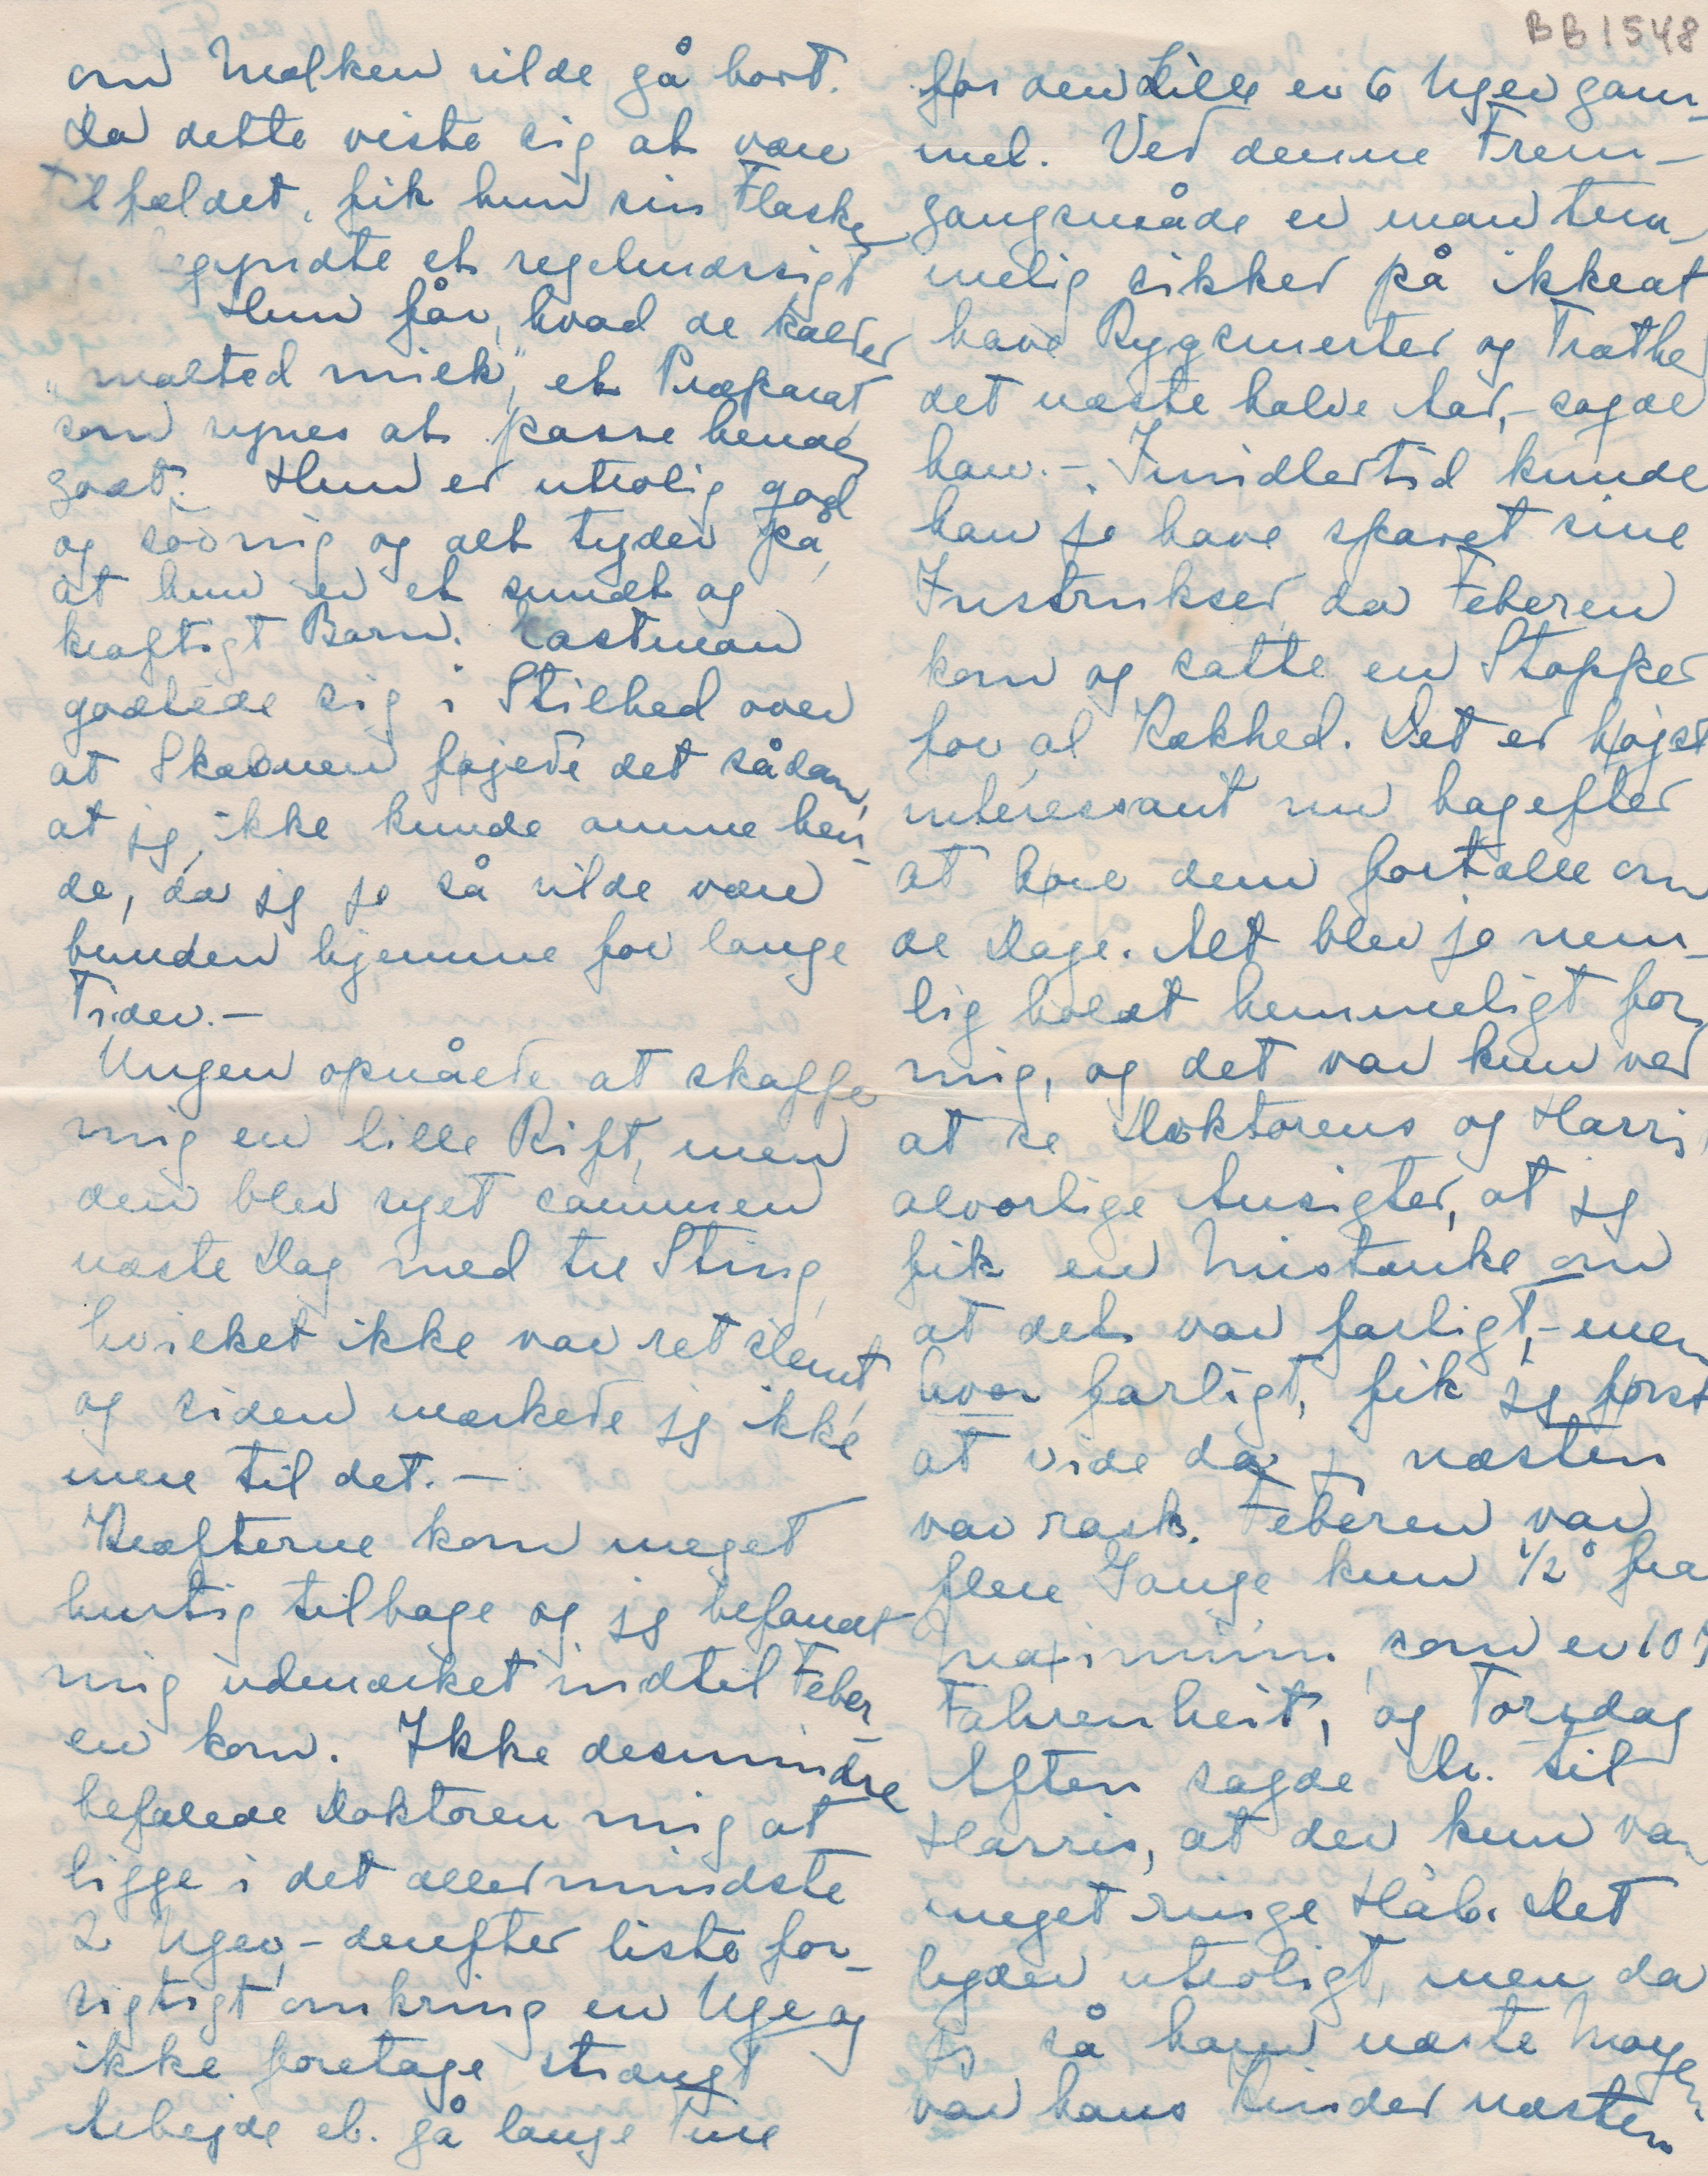 om Mælken vilde gå bort.
Da dette viste sig at være
Tilfældet, fik hun sin Flaske
begyndte et regelmæssigt
Hun får, hvad de kalder
"malted milk", et Præparat
som synes at passe hende
godt. Hun er utrolig god
og søvnig og alt tyder på,
at hun er et sundt og
kraftigt Barn. Eastman
godtede sig i Stilhed over
at Skæbnen føjede det sådan,
at jeg ikke kunde amme hen-
de, da jeg jo så vilde være
bunden hjemme for lange
Tider. -
Ungen opnåede at skaffe
mig en lille Rift, men
den blev syet sammen
næste Dag med tre Sting,
hvilket ikke var ret slemt,
og siden mærkede jeg ikke
mere til det. -
Kræfterne kom meget
hurtig tilbage og jeg befandt
mig udmærket indtil Feber-
en kom. Ikke desmindre
befalede Doktoren mig at
ligge i det allermindste
2 Uger, - derefter liste for-
sigtigt omkring en Uge og
ikke foretage strængt
Arbejde el. gå lange Ture
BB1548
før den Lille er 6 Uger gam-
mel. Ved denne Frem-
gangsmåde er man tem-
melig sikker på ikke at
have Rygsmerter og Træthed
det næste halve Aar, - sagde
han. - Imidlertid kunde
han jo have sparet sine
Instrukser, da Feberen
kom og satte en Stopper
for al Kækhed. Det er højst
interessant nu bagefter
at høre dem fortælle om
de Dage. Alt blev jo nem-
lig holdt hemmeligt for
mig, og det var kun ved
at se Doktorens og Harris
alvorlige Ansigter, at jeg
fik en Mistanke om
at det var farligt, - men
hvor farligt, fik jeg først
at vide da jeg næsten
var rask. Feberen var
flere Gange kun 1/2° fra
Maximum, som er 107
Fahrenheit, og Torsdag
Aften sagde Dr. til
Harris, at der kun var
meget ringe Håb. Det
lyder utroligt, men da
jeg så ham næste Morgen
var hans Kinder næsten